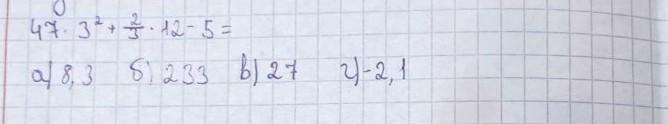 47. 3² + 2/3 · 12 - 5 =
а) 8,3 б) 233 в) 27 г) -2,1